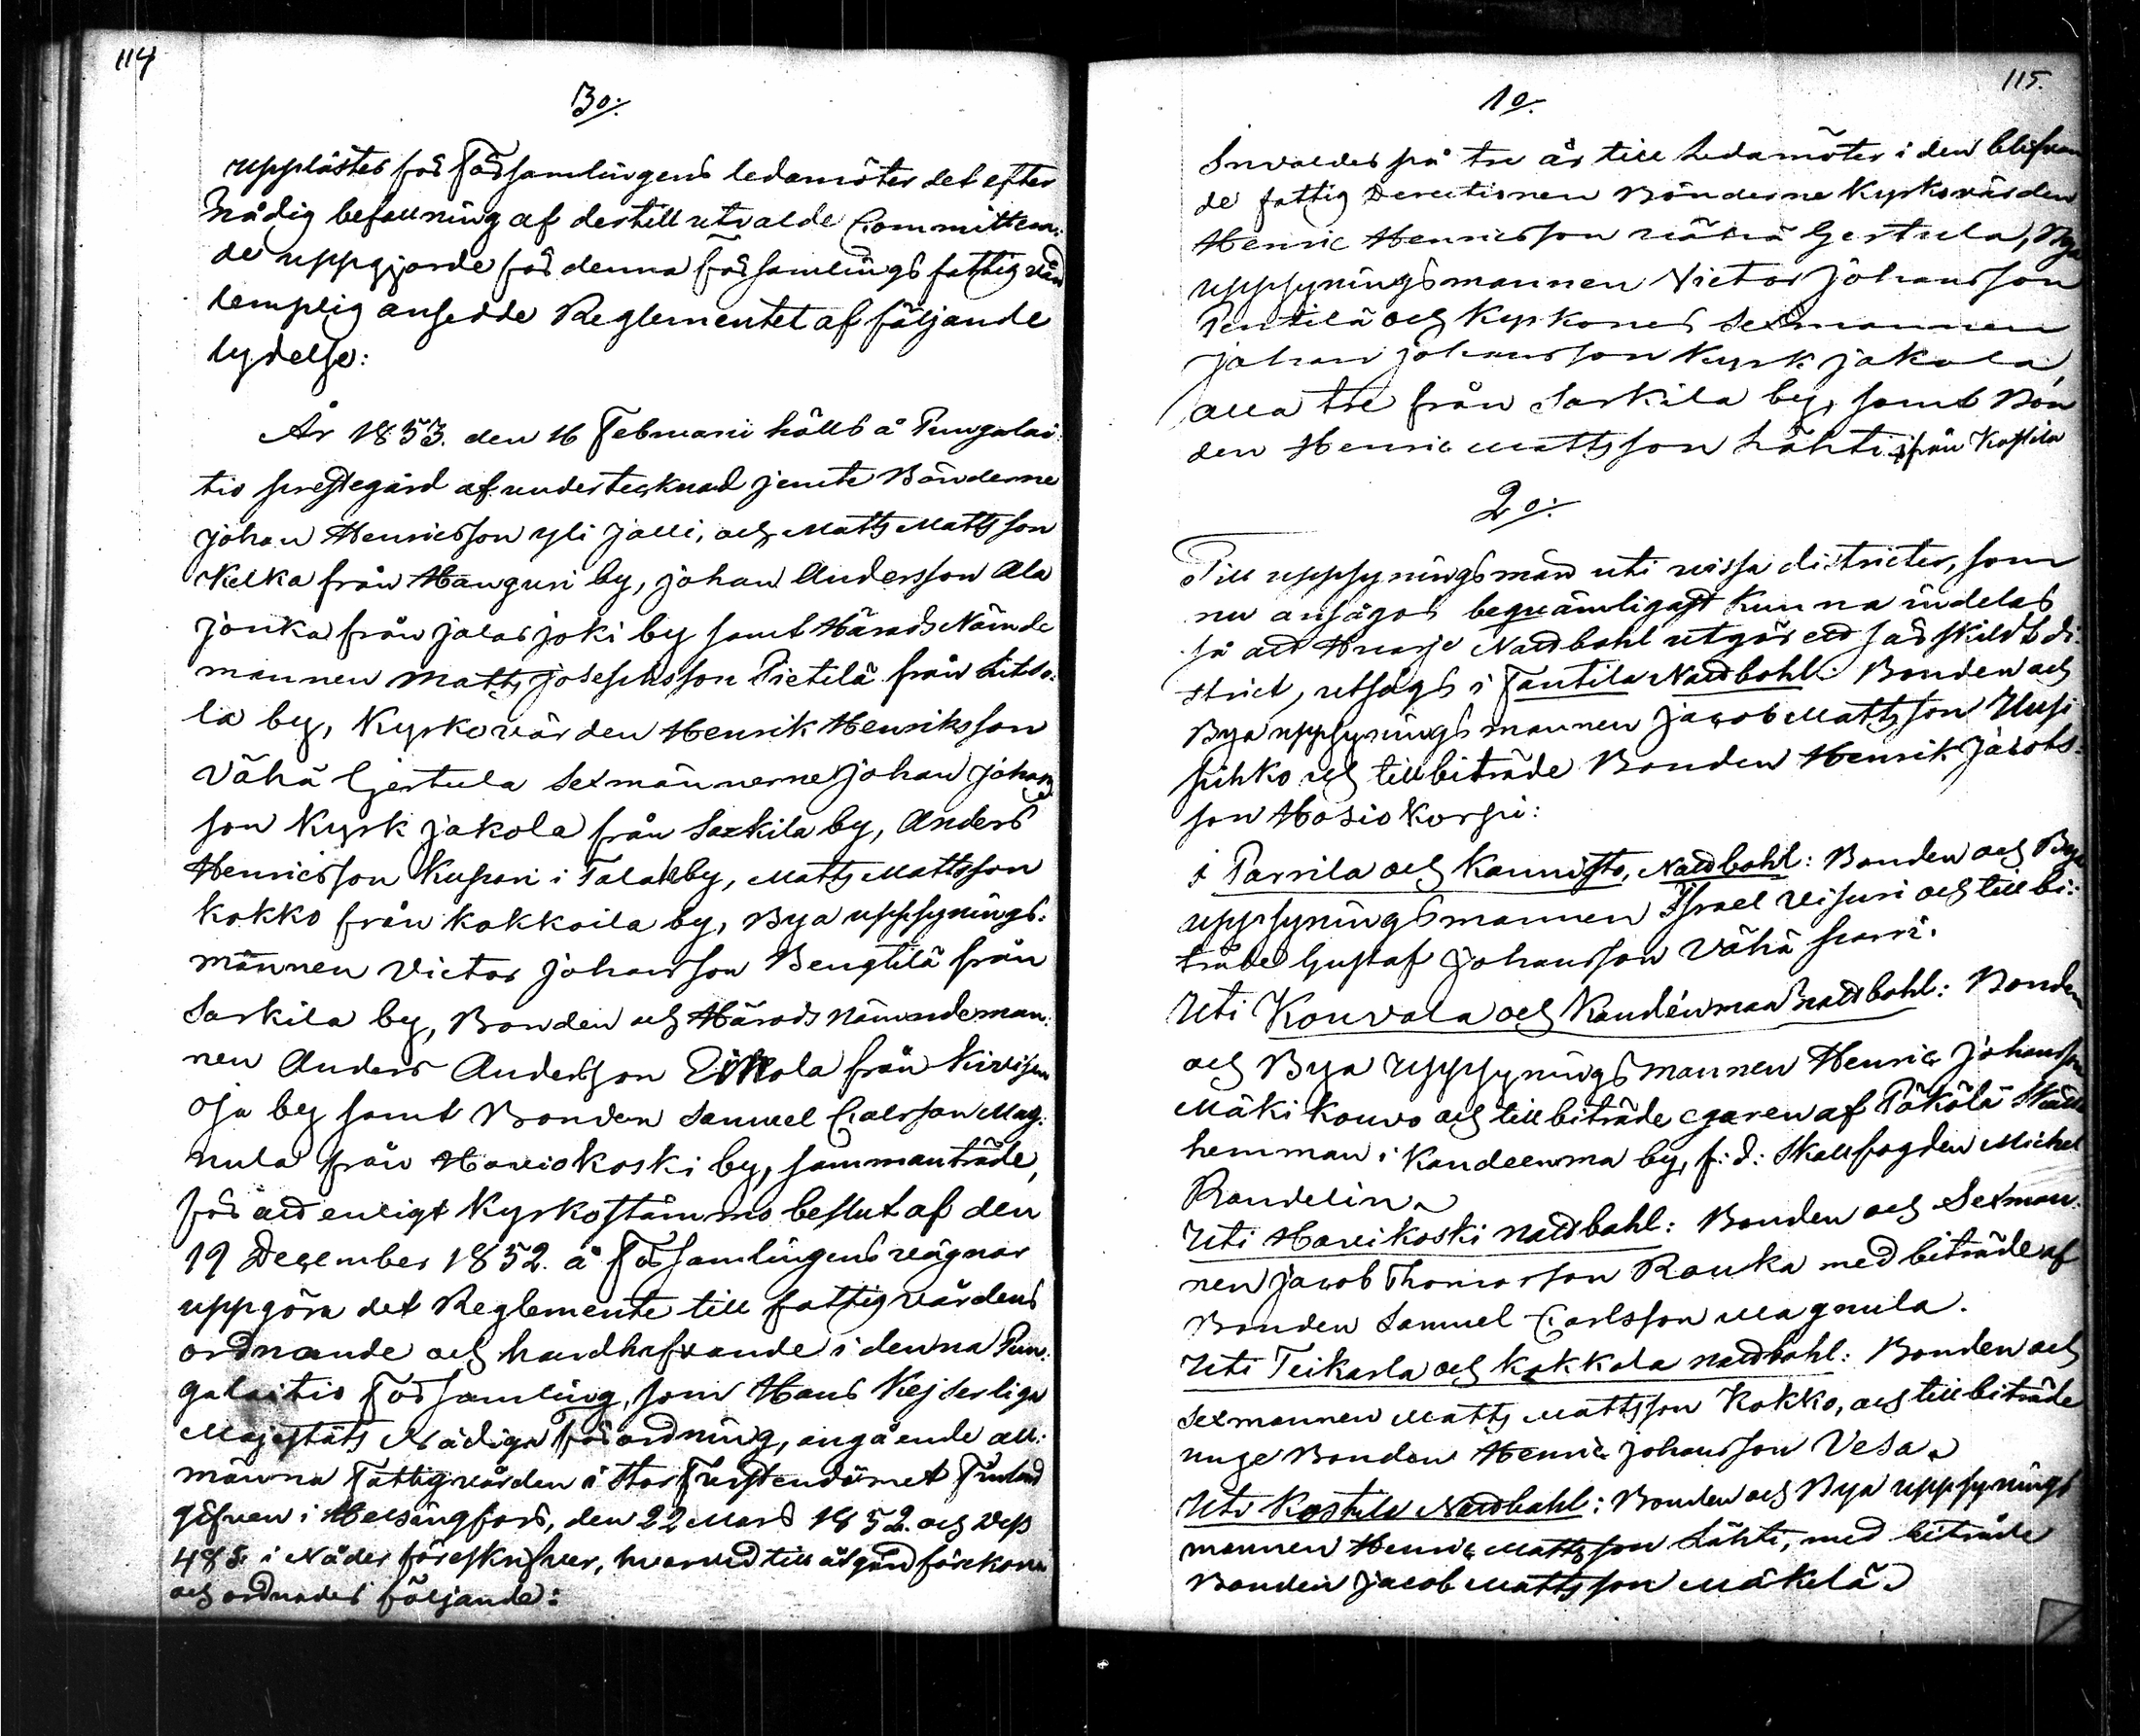 114
3o:
upplästes för Församlingens ledamöter det efter
Nådig befallning af dertill utvalde Committera:
de uppgjorde för denna församlings fattigvård
lemplig ansedde Reglementet af följande
lydelse:
År 1853. den 16 Februari hölls å Pungalai
tio prestegård af undertecknad jemte Bönderne
Johan Henricsson yli Jalli, och Matts Mattsson
Kelka från Hanguri by, Johan Andersson Ala
Jouka från Jalasjoki by samt Härads Nämnde
mannen Matts Josephsson Pietilä från Litso:
la by, Kyrkovärden Henrik Henriksson
Vähä Gertula Sexmännerne Johan Johans
son Kyrk Jakola från Sarkila by, Anders
Henricsson Kupari i Talala by, Matts Mattsson
Kokko från Kokkoila by, Bya uppsynings:
männen Victor Johansson Bengtilä från
Sarkila by, Bonden och Härads Nämndeman:
nen Anders Andersson Eikola från Kirvisen
oja by samt Bonden Samuel Carlsson Mag:
nula från Haviokoski by, sammanträde,
för att enligt Kyrkostämmo beslut af den
19 December 1852. å Församlingens vägnar
uppgöra det Reglemente till fattigvårdens
ordnande och handhafvande i denna Pun:
galaitio Församling, som Hans Kejserliga
Majestäts Nådiga Förordning, angående all:
männa Fattigvården i StorFurstendömet Finland
gifven i Helsingfors, den 22 Mars 1852. och dess
48 §. i Nåder föreskrifver, hvarvid till åtgärd förekom
och ordnades följande:
115.
1o.
Invaldes på tre år till Ledamöter i den blifvan
de fattig Directionen Bönderne Kyrkovärden
Henric Henricsson vähä Gertula, Bya
uppsyningsmannen Victor Johansson
Pentilä och Kyrkones Sexmannen
Johan Johansson Kyrk Jakola,
alla tre från Sarkila by, samt Bon
den Henric Mattsson Lähti från Kostila
2o:
Till uppsyningsmän uti vissa districter, som
nu ansågos beqvämligast kunna indelas
så att Hvarje Nattbohl utgör ett särskildt di:
strict, utsågs i Fantila Nattbohl: Bonden och
Bya uppsyningsmannen Jacob Mattsson Uusi
pihko och till biträde Bonden Henrik Jacobs:
son Hosio Korpi:
i Parrila och Kannisto, Nattbohl: Bonden och Bya
uppsyningsmannen Israel Uisuri och till bi:
träde Gustaf Johansson Vähä parri.
Uti Kouvala och Kandéenmaa nattbohl: Bonden
och Bya Uppsyningsmannen Henric Johansson
Mäki Kouvo och till biträde egaren af Pökölä Skatte
hemman i Kandeenma by, f: d: Skallfogden Michel
Randelin.
Uti Havikoski nattbohl: Bonden och Sexman:
nen Jacob Thomasson Rauka med biträde af
Bonden Samuel Carlsson Magnula.
Uti Teikarla och Kokkola nattbohl: Bonden och
Sexmannen Matts Mattsson Kokko, och till biträde
unge Bonden Henric Johansson Vesa.
Uti Kostila Nattbohl: Bonden och Bya uppsynings
mannen Henric Mattsson Lähti, med biträde
Bonden Jacob Mattsson Mäkelä.